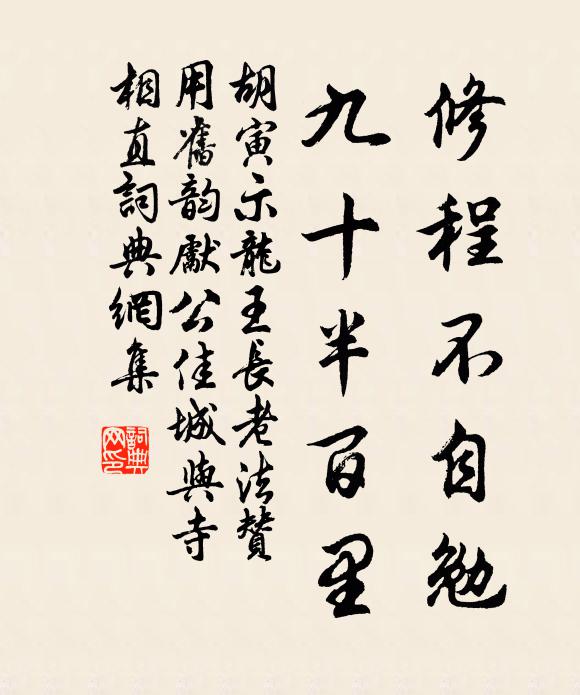 修程不自勉
九十半百里
胡寅示龍王長老法贊
用舊韵獻公佳城與寺
相直詞典網集
詞典
网印